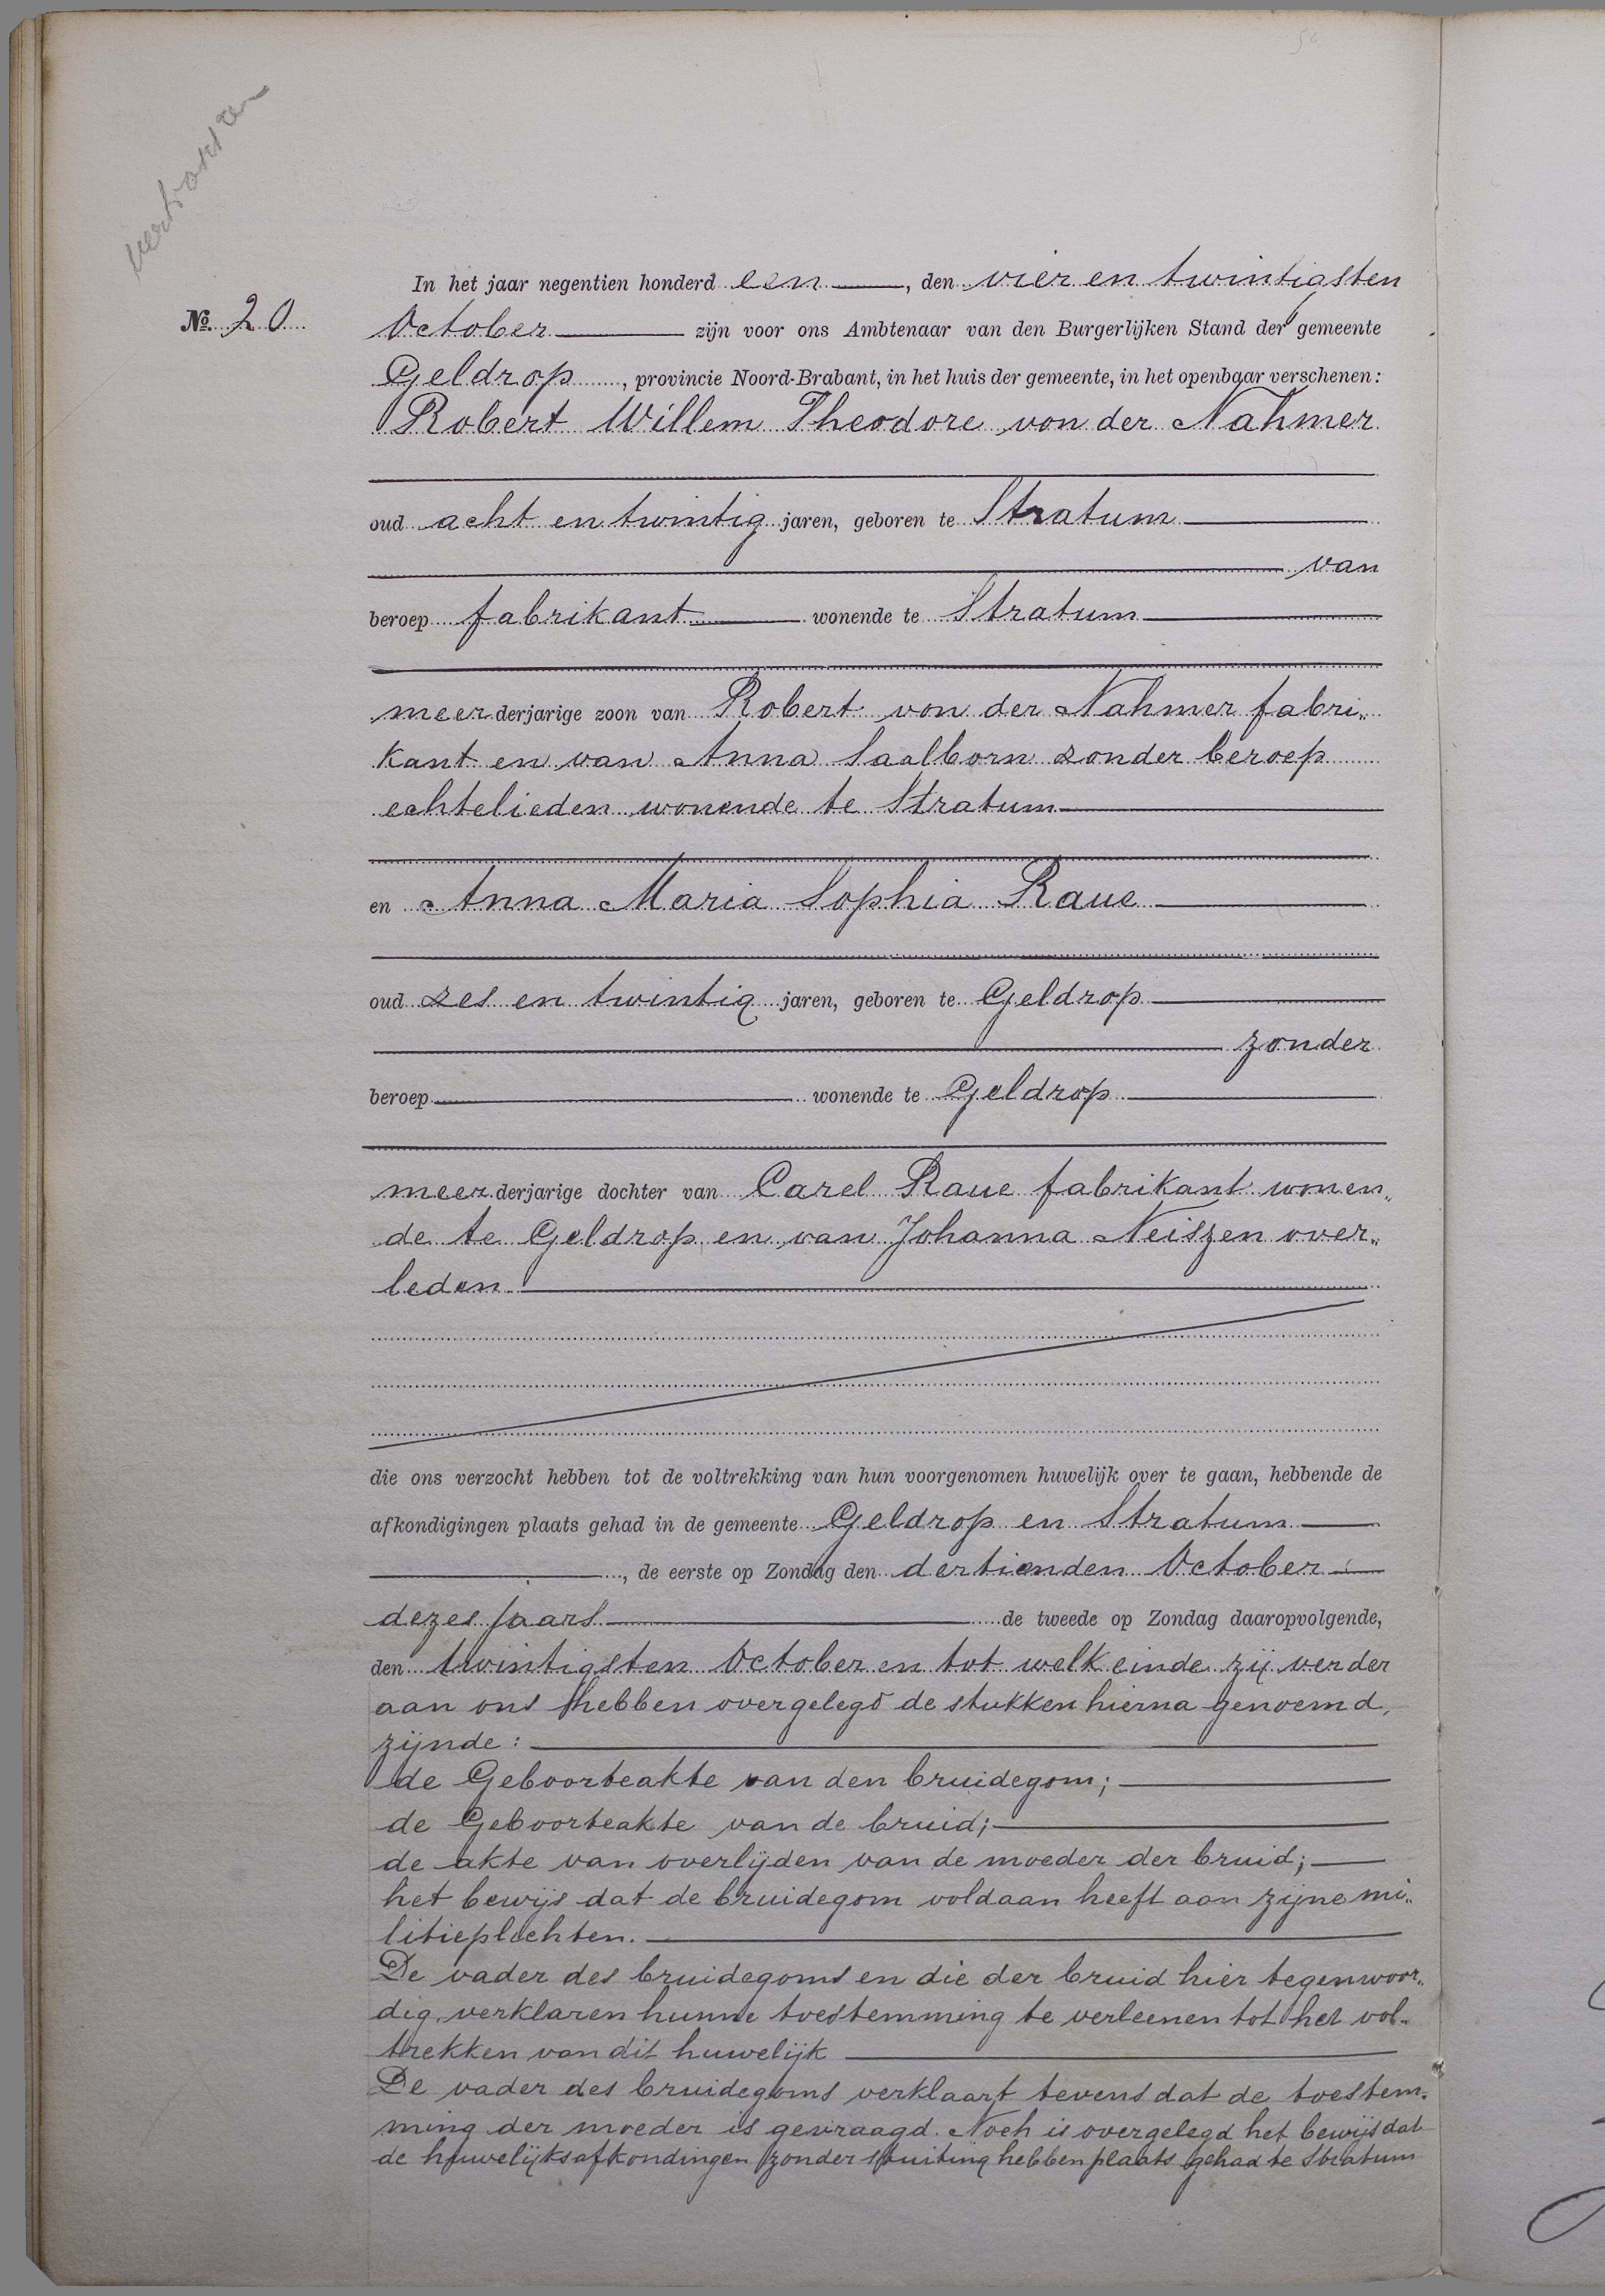 vertrokken
In het jaar negentien honderd een, den vier en twintigsten
No. 20
October zijn voor ons Ambtenaar van den Burgerlijken Stand der gemeente
Geldrop, provincie Noord-Brabant, in het huis der gemeente, in het openbaar verschenen:
Robert Willem Theodore von der Nahmer
oud acht en twintig jaren, geboren te Stratum
van
beroep fabrikant wonende te Stratum
meerderjarige zoon van Robert von der Nahmer fabri„
kant en van Anna Saalborn zonder beroep
echtelieden wonende te Stratum
en Anna Maria Sophia Raue
oud zes en twintig jaren, geboren te Geldrop
zonder
beroep wonende te Geldrop
meerderjarige dochter van Carel Raue fabrikant wonen„
de te Geldrop en van Johanna Neiszen over„
leden
die ons verzocht hebben tot de voltrekking van hun voorgenomen huwelijk over te gaan, hebbende de
afkondigingen plaats gehad in de gemeente Geldrop en Stratum
, de eerste op Zondag den dertienden October
dezes jaars de tweede op Zondag daaropvolgende,
den twintigsten October en tot welk einde zij verder
aan ons hebben overgelegd de stukken hierna genoemd,
zijnde:
de Geboorteakte van den bruidegom;
de Geboorteakte van de bruid;
de akte van overlijden van de moeder der bruid;
het bewijs dat de bruidegom voldaan heeft aan zijne mi„
litieplichten.
De vader des bruidegoms en die der bruid hier tegenwoor„
dig, verklaren hunne toestemming te verleenen tot het vol„
trekken van dit huwelijk
De vader des bruidegoms verklaart tevens dat de toestem„
ming der moeder is gevraagd. Noch is overgelegd het bewijs dat
de huwelijksafkondingen zonder stuiting hebben plaats gehad te Stratum